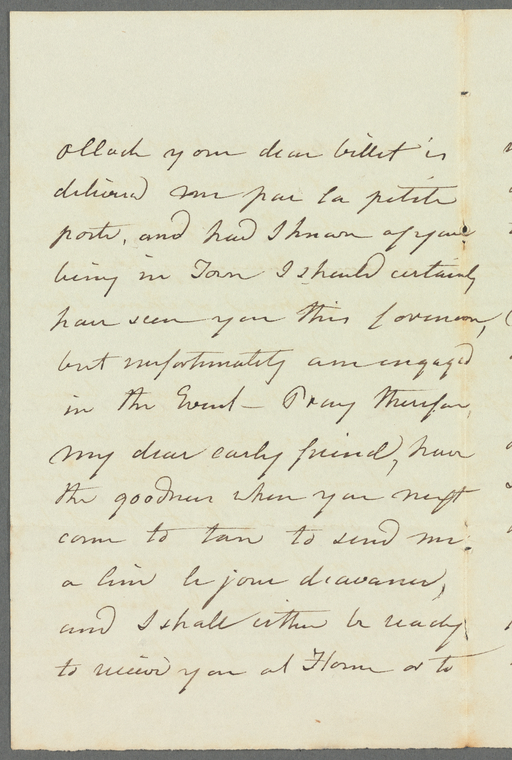 oClock your dear billet is
deliverd me par la petite
poste, and had I known of your
being in Town I should certainly
have seen you this forenoon,
but unfortunately am engaged
in the Event — Pray therefore,
my dear early friend, have
the goodness when you next
come to town to send me
a line le jour d'avance,
and I shall either be ready
to receive you at Home or to